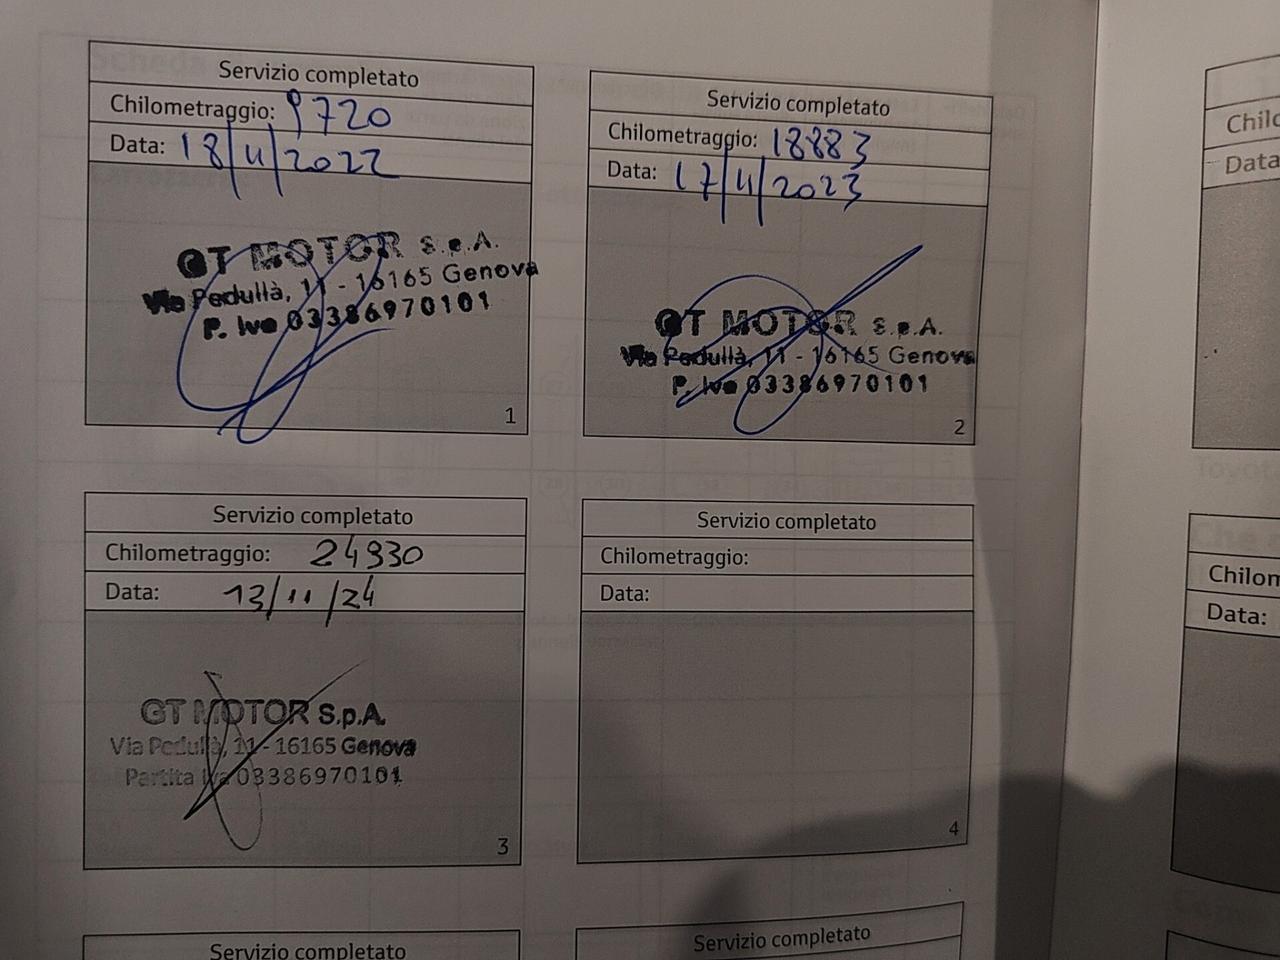 Servizio completato
Chilometraggio: 9720
Data: 18/11/2022
GT MOTOR S.p.A.
Via Pedullà, 11 - 16165 Genova
P. Iva 03386970101
1
Servizio completato
Chilometraggio: 18883
Data: 17/11/2023
GT MOTOR S.p.A.
Via Pedullà, 11 - 16165 Genova
P. Iva 03386970101
2
Servizio completato
Chilometraggio: 24930
Data: 13/11/24
GT MOTOR S.p.A.
Via Pedullà, 11 - 16165 Genova
Partita Iva 03386970101
3
Servizio completato
Chilometraggio:
Data:
4
Servizio completato
Servizio completato
Data
Chilom
Data: